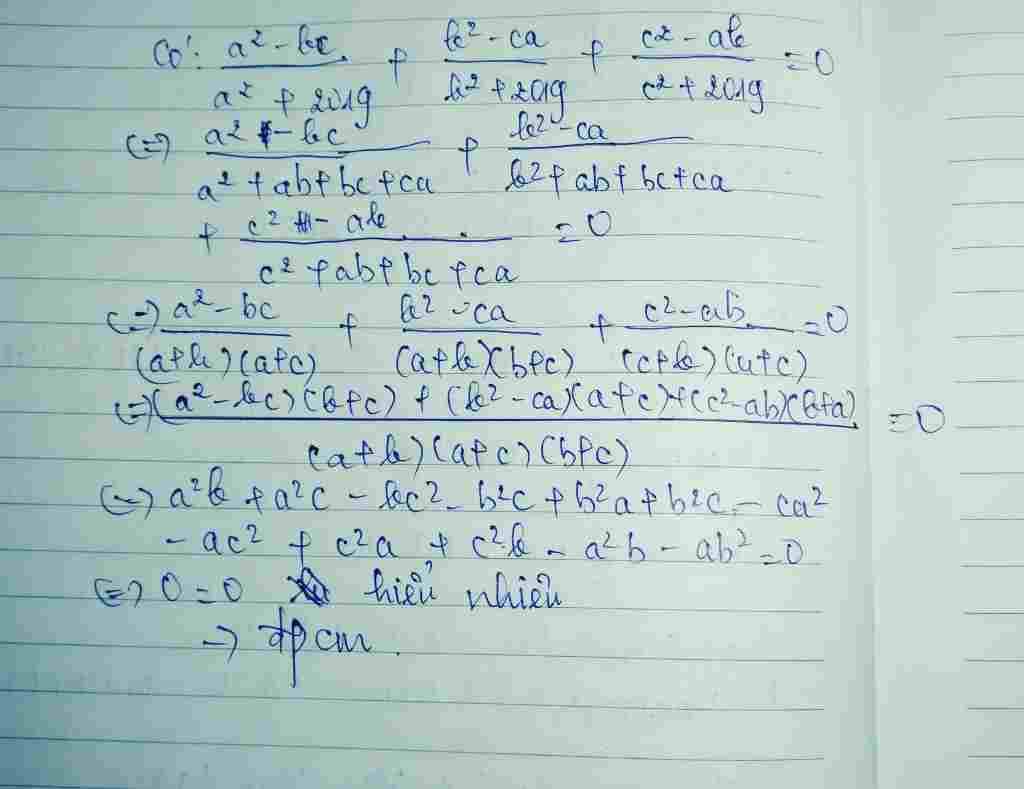 Có: (a² - bc)/(a² + 2019) + (b² - ca)/(b² + 2019) + (c² - ab)/(c² + 2019) = 0
(=) (a² - bc)/(a² + ab + bc + ca) + (b² - ca)/(b² + ab + bc + ca)
+ (c² - ab)/(c² + ab + bc + ca) = 0
(=) (a² - bc)/((a+b)(a+c)) + (b² - ca)/((a+b)(b+c)) + (c² - ab)/((c+b)(a+c)) = 0
(=) ((a² - bc)(b+c) + (b² - ca)(a+c) + (c² - ab)(b+a))/((a+b)(a+c)(b+c)) = 0
(=) a²b + a²c - bc² - b²c + b²a + b²c - ca²
- ac² + c²a + c²b - a²b - ab² = 0
(=) 0 = 0 hiển nhiên
→ đpcm.